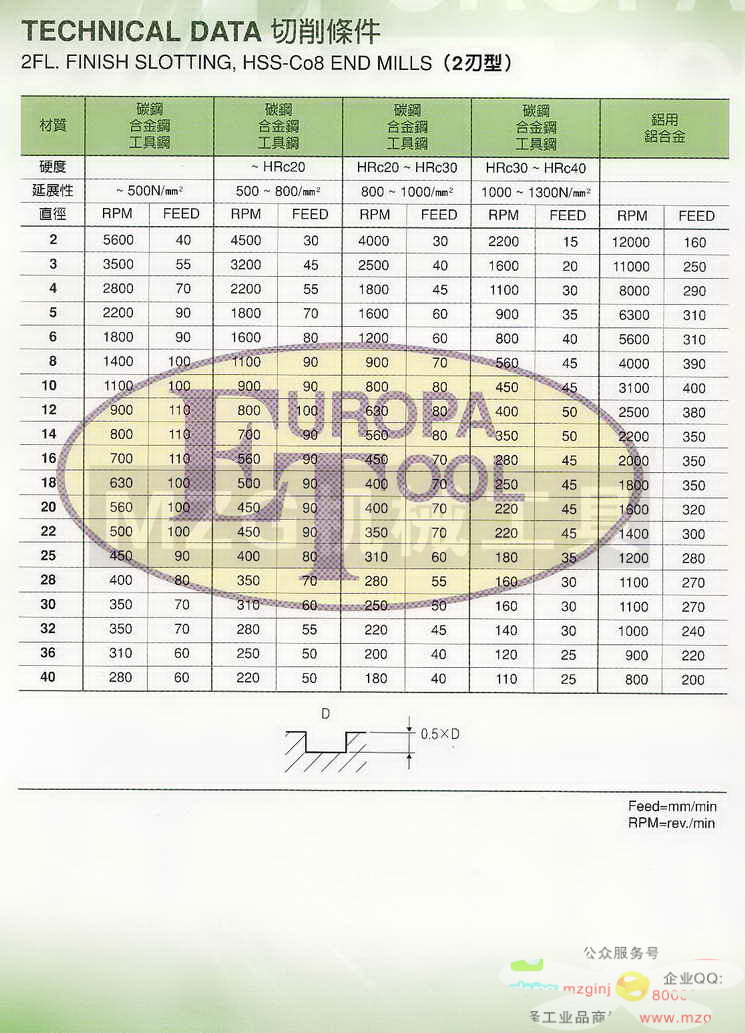 TECHNICAL DATA 切削條件
2FL. FINISH SLOTTING, HSS-Co8 END MILLS (2刃型)
材質 碳鋼 合金鋼 工具鋼 碳鋼 合金鋼 工具鋼 碳鋼 合金鋼 工具鋼 碳鋼 合金鋼 工具鋼 鋁用 鋁合金
硬度 ~ HRc20 HRc20 ~ HRc30 HRc30 ~ HRc40
延展性 ~ 500N/mm² 500 ~ 800/mm² 800 ~ 1000/mm² 1000 ~ 1300N/mm²
直徑 RPM FEED RPM FEED RPM FEED RPM FEED RPM FEED
2 5600 40 4500 30 4000 30 2200 15 12000 160
3 3500 55 3200 45 2500 40 1600 20 11000 250
4 2800 70 2200 55 1800 45 1100 30 8000 290
5 2200 90 1800 70 1600 60 900 35 6300 310
6 1800 90 1600 80 1200 60 800 40 5600 310
8 1400 100 1100 90 900 70 560 45 4000 390
10 1100 100 900 90 800 80 450 45 3100 400
12 900 110 800 100 630 80 400 50 2500 380
14 800 110 700 90 560 80 350 50 2200 350
16 700 110 560 90 450 70 280 45 2000 350
18 630 100 500 90 400 70 250 45 1800 350
20 560 100 450 90 400 70 220 45 1600 320
22 500 100 450 90 350 70 220 45 1400 300
25 450 90 400 80 310 60 180 35 1200 280
28 400 80 350 70 280 55 160 30 1100 270
30 350 70 310 60 250 50 160 30 1100 270
32 350 70 280 55 220 45 140 30 1000 240
36 310 60 250 50 200 40 120 25 900 220
40 280 60 220 50 180 40 110 25 800 200
EUROPA
TOOL
机械工具
D
0.5×D
Feed=mm/min
RPM=rev./min
公众服务号
mzginj
企业QQ:
800
工业品商
www.mzg